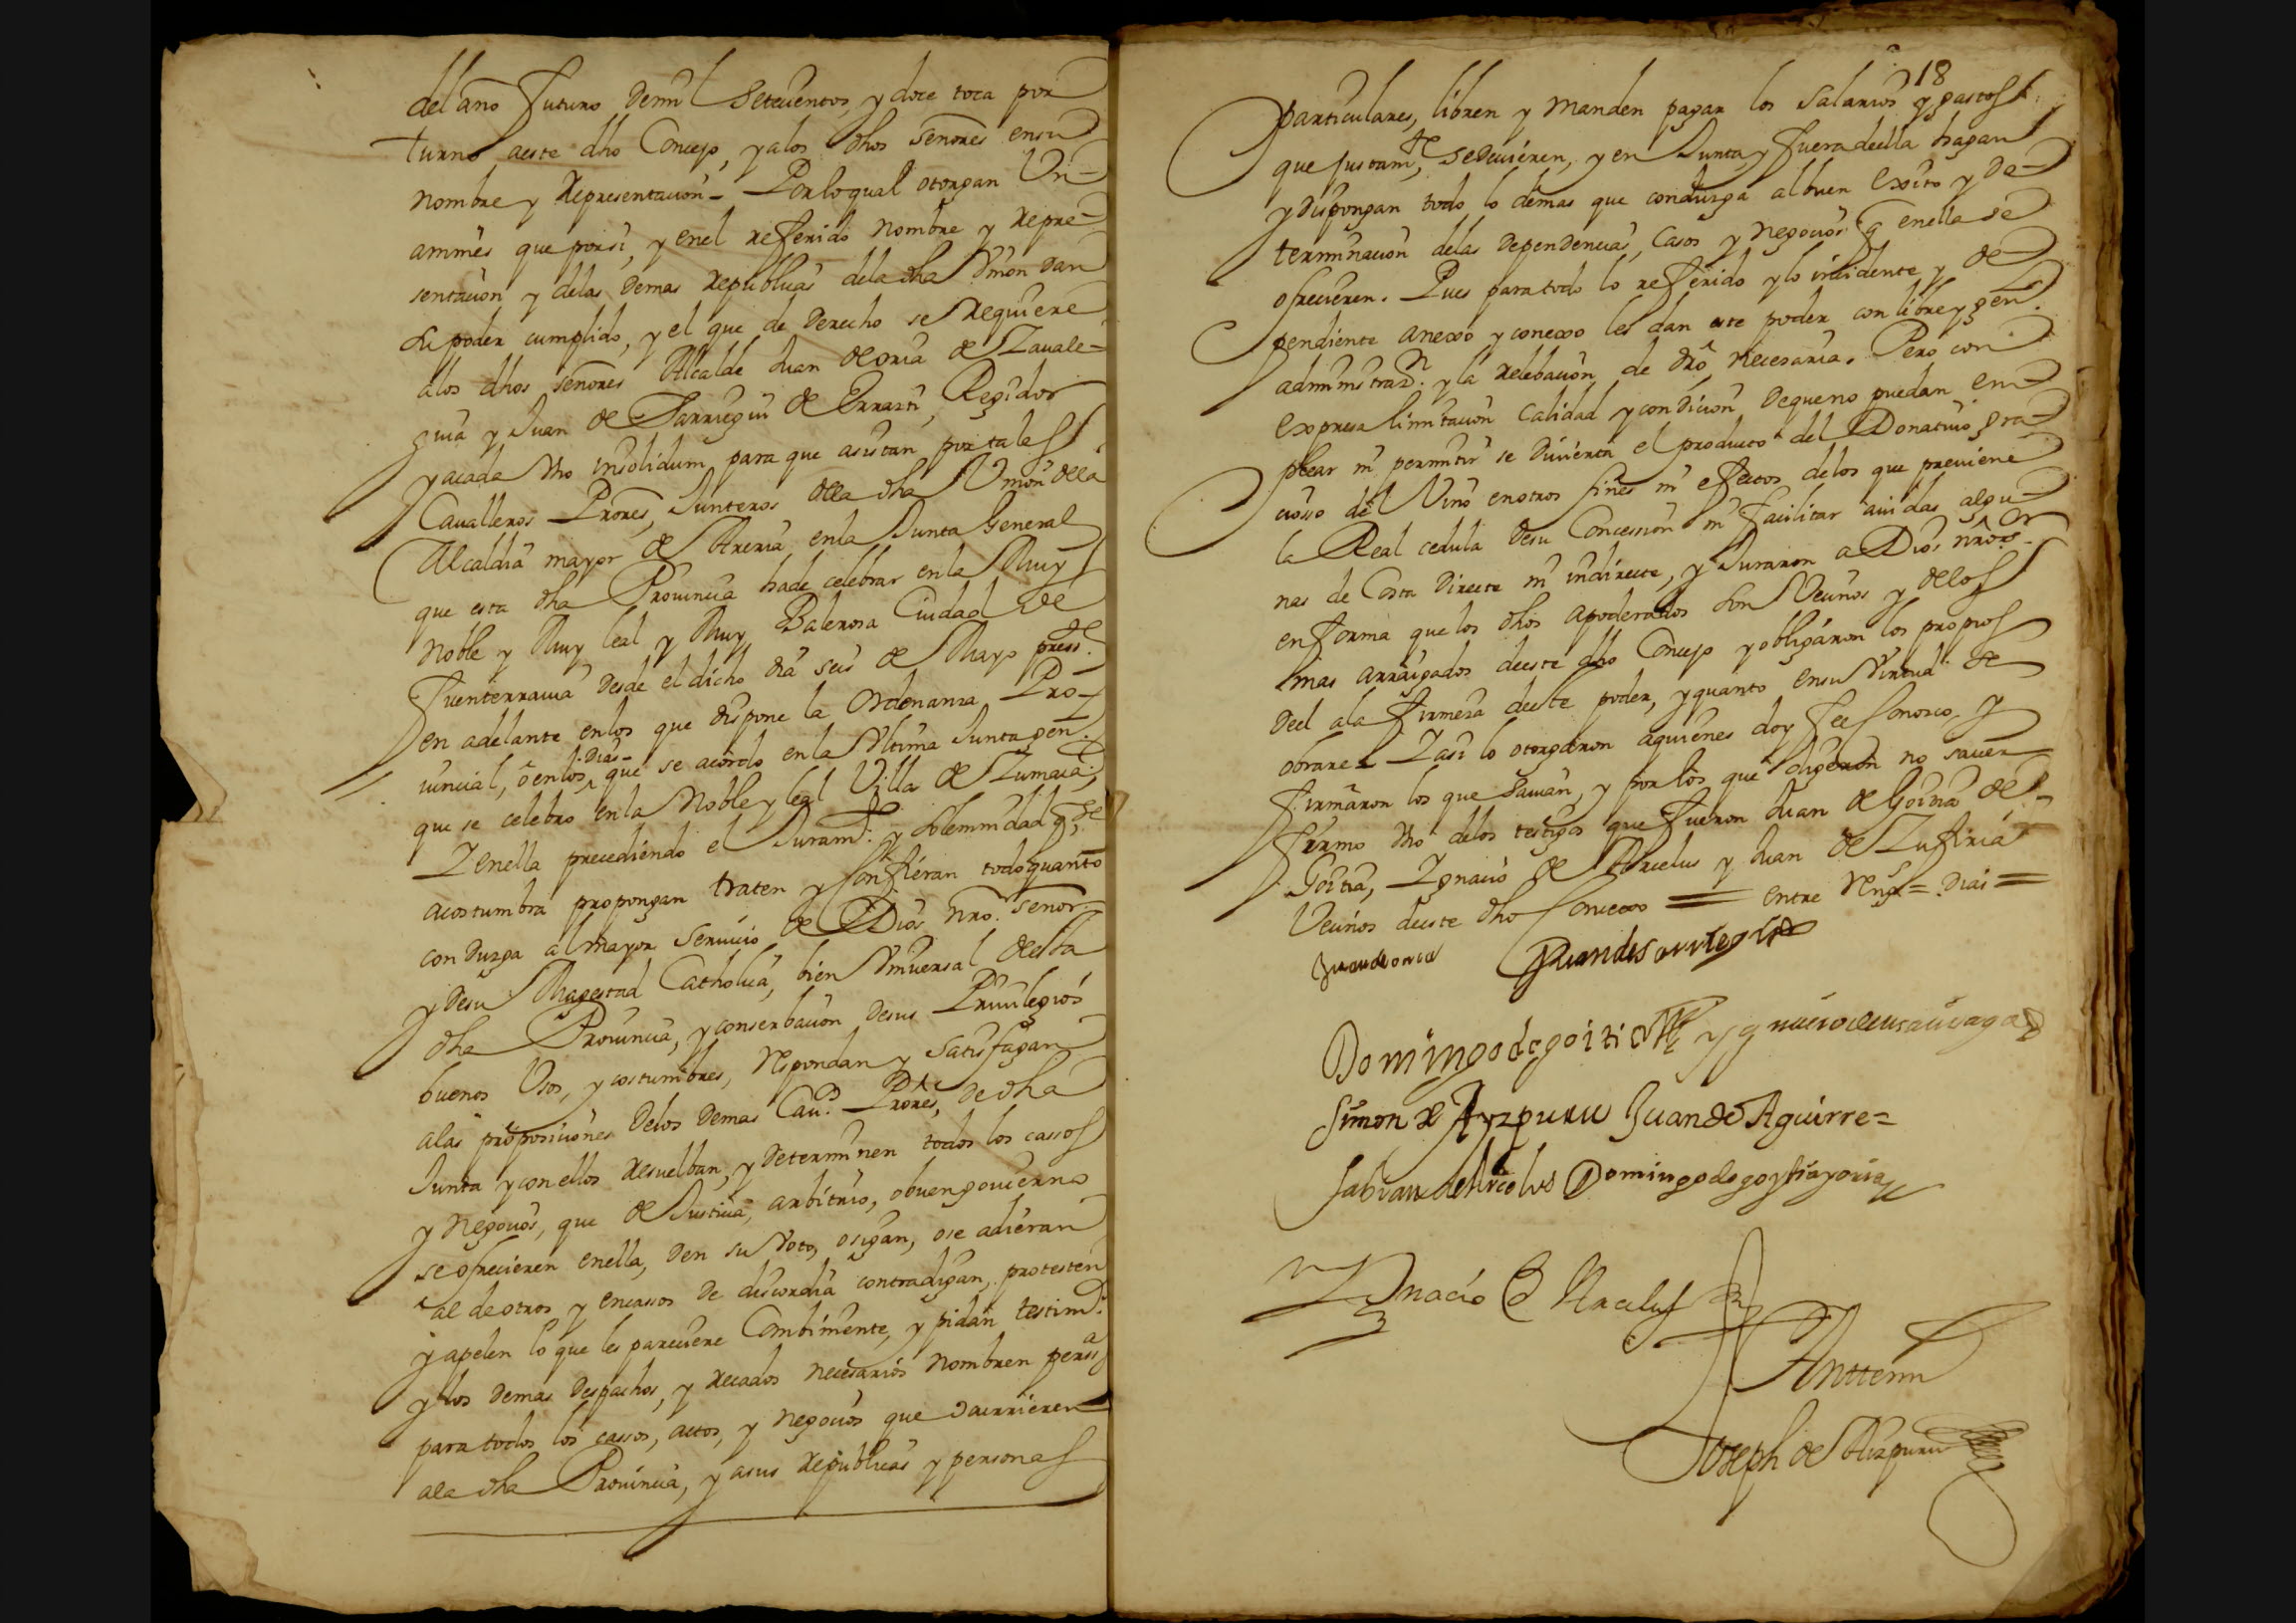 del año futuro demil Seteuentos, y doce toca por
turno aeste dho Concejo, yalos dhos señores ensu
nombre y Representacion - Porloqual otorgan Un-
ammes que porsi, y enel referido nombre y repre-
sentacion y delas Demas Republicas dela dha Vnion dan
su poder cumplido, y el que de Derecho se Requiere
alos dhos señores Alcalde Juan de oria de Zauale-
guia y Juan de Sarruegui de Errasti, Regidor
yacada Vno insolidum para que asistan por tales
Caualleros Prores, Junteros della dha Vnion dela
Alcaldia mayor de Areria enla Junta General
que esta dha Prouincia hade celebrar enla Muy
Noble y Muy leal y Muy Balerosa Ciudad de
Fuenterrauia desde el dicho dia seis de Mayo press.te
en adelante enlos que dispone la Ordenanza Pro-
uincial, ó enlos Dias que se acordo enla Vltima Junta gen.l
que se celebro enla Noble y leal Villa de Zumaia;
Y enella precediendo el Juram.to y solemnidad q se
acostumbra propongan traten y confieran todoquanto
conduzga al mayor Seruicio de Dios nro. Señor.
y desu Magestad Catholica, bien Vniversal desta
dha Prouincia, y conserbacion desus Priuilegios
buenos Vsos, y costumbres, Respondan y satisfagan
alas proposiciones Delos Demas Cau.s Prores, de dha
Junta y conellos Resuelban, y Determinen todos los cassos
y Negocios, que de Justicia, arbitrio, obuengouierno
se ofrecieren enella, Den su Voto, osigan, ose adieran
al deotros y encassos de discordia contradigan, protesten
y apelen lo que les pareciere Combiniente, y pidan testim.o
y los demas Despachos, y Recados necesarios nombren perss.a
para todos los cassos, actos, y negocios que ocurrieren
ala dha Prouincia, y asus Republicas y personas
18
particulares, libren y manden pagar los salarios y gastos
que justam.te sedeuieren, y en Junta y fuera della hagan
y dispongan todo lo demas que conduzga albuen Exito y De-
terminacion delas Dependencias, Casos y Negocios q enella se
ofrecieren. Pues paratodo lo referido ylo incidente y de-
pendiente anexo yconexo les dan este poder con libre y gen.l
administraz.n y la Relebacion de dro necesaria. Pero con
Expresa limitacion Calidad ycondicion dequeno puedan em-
plear ni permitir se Diuierta el producto del Donatiuo gra-
cioso del Vino enotros fines ni efectos delos que preuiene
la Real cedula desu Concession ni facilitar auidas algu-
nas de Costa Directe ni indirecte, y Juraron a Dios nro sr
en forma que los dhos apoderados son Vecinos y delos
mas arraigados deeste dho Concejo yobligaron los propios
deel ala firmeza deeste poder, yquanto ensu Virtud se
obrare Yasi lo otorgaron aquienes doy fee conozco, y
firmaron los que sauian, y por los que dixeron no sauer
firmo Vno delos testigos que fueron Juan de Goitia de
Goitia, Ygnacio de Arcelus y Juan de Zufiria
Vecinos deeste dho Concexo = entre Reng.s = Dias =
Juandeoria Juandesarruegui
Domingo de goitia
Simon de Ayzpuru Juan de Aguirre =
fabian de Arcelus Domingodegoytiayoria
Ygnacio de Arcelus
Antemi
Joseph de Aizpuru